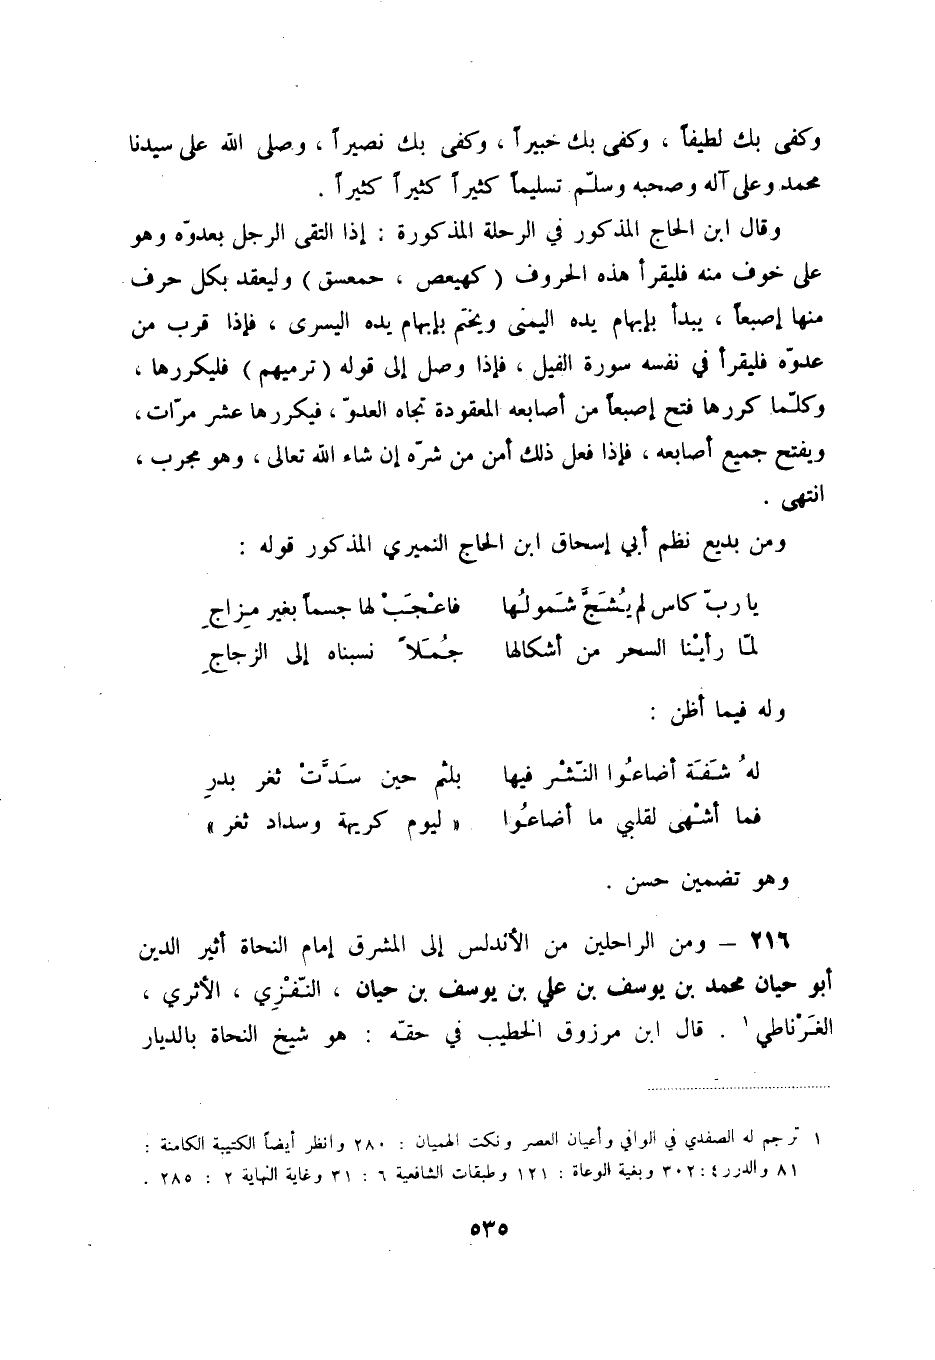 وكفى بك لطيفاً ، وكفى بك خبيراً ، وكفى بك نصيراً ، وصلى الله على سيدنا
محمد وعلى آله وصحبه وسلّم تسليماً كثيراً كثيراً كثيراً .
وقال ابن الحاج المذكور في الرحلة المذكورة : إذا التقى الرجل بعدوّه وهو
على خوف منه فليقرأ هذه الحروف ( كهيعص ، حمعسق ) وليعقد بكل حرف
منها إصبعاً ، يبدأ بإبهام يده اليمنى ويختم بإبهام يده اليسرى ، فإذا قرب من
عدوّه فليقرأ في نفسه سورة الفيل ، فإذا وصل إلى قوله ( ترميهم ) فليكررها ،
وكلّما كررها فتح إصبعاً من أصابعه المعقودة تجاه العدوّ ، فيكررها عشر مرّات ،
ويفتح جميع أصابعه ، فإذا فعل ذلك أمن من شرّه إن شاء الله تعالى ، وهو مجرب ،
انتهى .
ومن بديع نظم أبي إسحاق ابن الحاج النميري المذكور قوله :
يا ربّ كاس لم يُشَجَّ شَمولُها فاعْجَبْ لها جسماً بغير مِزاجِ
لمّا رأيْنا السحر من أشكالها جُمَلاً نسبناه إلى الزجاجِ
وله فيما أظن :
لهُ شَفَة أضاعُوا النّشْر فيها بلثم حين سَدَّتْ ثغر بدرِ
فما أشْهى لقلبي ما أضاعُوا « ليوم كريهة وسداد ثغر »
وهو تضمين حسن .
٢١٦ – ومن الراحلين من الأندلس إلى المشرق إمام النحاة أثير الدين
أبو حيان محمد بن يوسف بن علي بن يوسف بن حيان ، النّفْزِي ، الأثري ،
الغَرْناطي ١ . قال ابن مرزوق الخطيب في حقّه : هو شيخ النحاة بالديار
١ ترجم له الصفدي في الوافي وأعيان العصر ونكت الهميان : ٢٨٠ وانظر أيضاً الكتيبة الكامنة :
٨١ والدرر ٤ : ٣٠٢ وبغية الوعاة : ١٢١ وطبقات الشافعية ٦ : ٣١ وغاية النهاية ٢ : ٢٨٥ .
٥٣٥